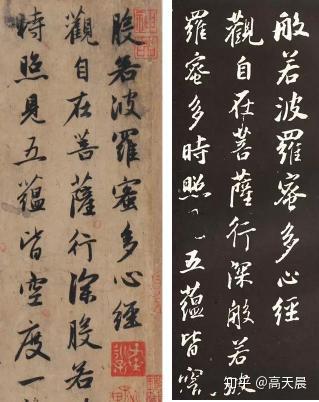 般若波羅蜜多心經
觀自在菩薩行深般若
時照見五蘊皆空度一
般若波羅蜜多心經
觀自在菩薩行深般若波
羅蜜多時照五蘊皆空
知乎 @高天晨